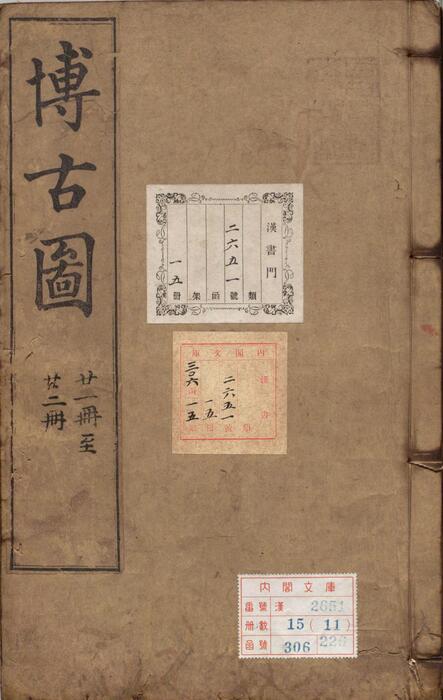 博古圖
廿一冊至
廿二冊
漢書門
類
二六五一號
函
架
一五冊
內閣文庫
漢書
二六五一
一五
三〇六
一五
內閣文庫
番號 漢 2651
冊數 15 (11)
函號 306 226